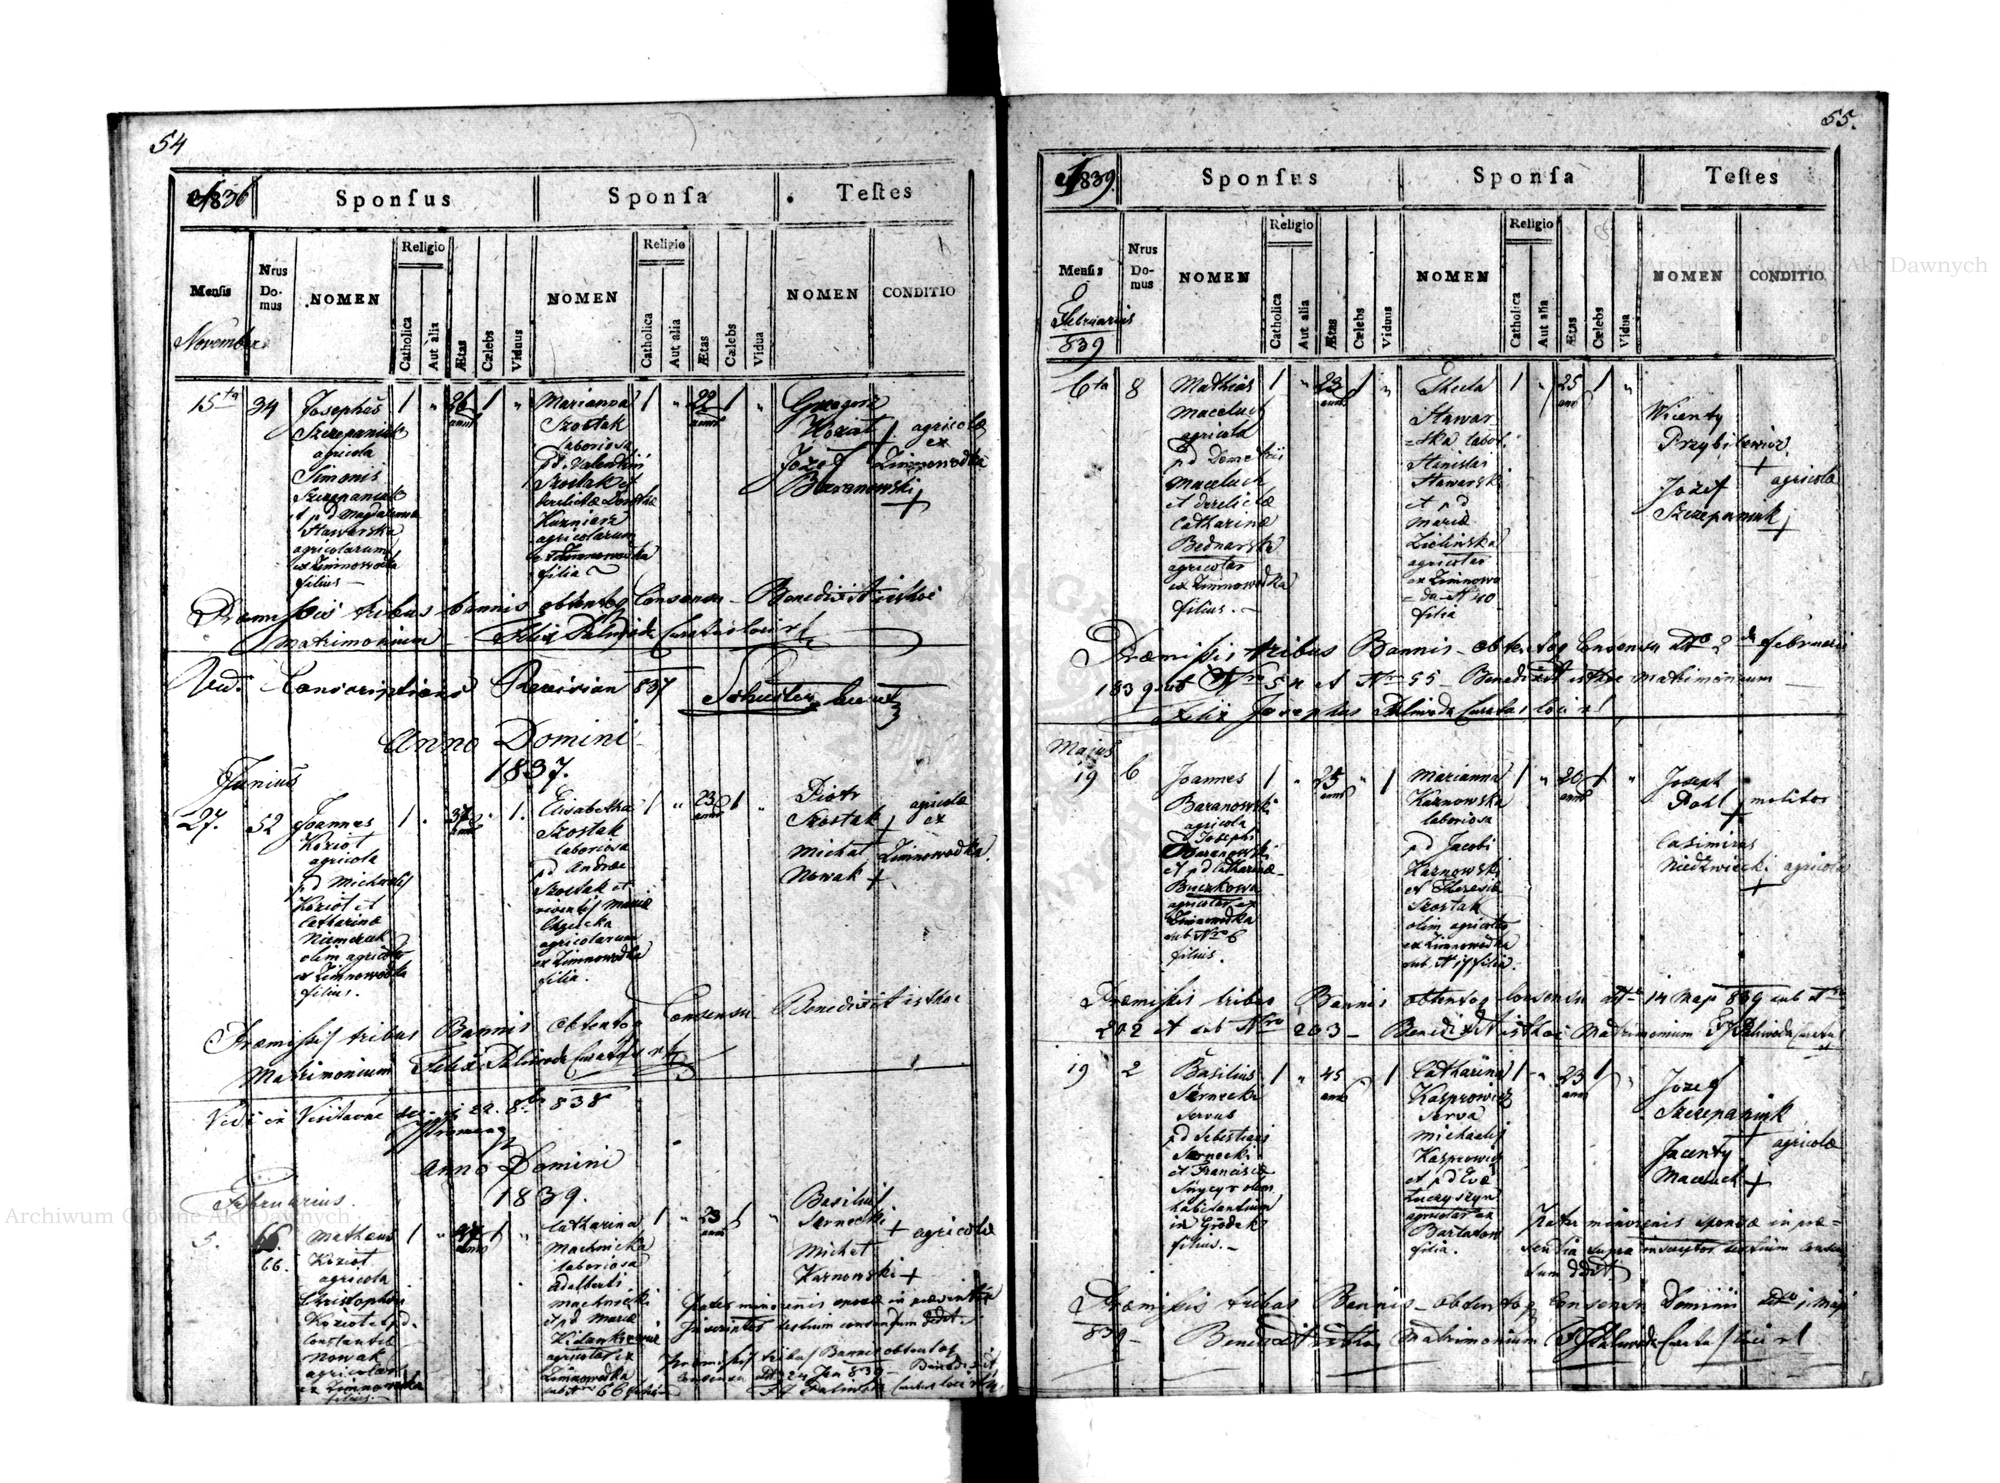 54
1836
Sponsus
Sponsa
Testes
Mensis
Nrus Do-mus
NOMEN
Religio
Catholica
Aut alia
Ætas
Cœlebs
Viduus
NOMEN
Religio
Catholica
Aut alia
Ætas
Cœlebs
Vidua
NOMEN
CONDITIO
November
15ta
34
Josephus
Szczepaniak
agricola
Simonis
Szczepaniak
et pd Magdalena
Stawarska
agricolarum
ex Zimnowodka
filius
1
26
anno
1
Marianna
Szostak
laboriosa
pd Valentini
Szostak et
derelictæ Dorothe
agricolarum
ex Zimnowodka
filia
1
22
anno
1
Grzegorz
Kozat +
Jozef
Baranowski
+
agricolæ
ex
Zimnowodka
Præmissis tribus bannis obtentoq Consensu Benedixit isthoc
matrimonium Felix Palivoda Curatus loci
Conscriptions Revision 837 Schuster
Anno Domini
1837.
Junius
27.
52
Joannes
Koziot
agricola
pd Michaelis
Koziot et
Catharinæ
Niemczuk
olim agricolar
ex Zimnowodka
filius.
1
37
anno
1.
Elisabetha
Szostak
laboriosa
pd Andreæ
Szostak et
viventis Mariæ
agricolarum
ex Zimnowodka
filia.
1
23
anno
1
Piotr
Szostak +
Michał
Nowak +
agricolæ
ex
Zimnowodka.
Præmissis tribus Bannis obtentoq Consensu Benedixit isthoc
Matrimonium Felix Palivoda Curatus
Vidi in Visitaone 22. 8br 838
Anno Domini
1839.
Februarius
5.
66.
Matheus
Koziot
agricola
Christophori
Koziot et pd.
Constantiæ
Nowak
agricolar
ex Zimnowodka
filius.
1
47
anno
1
Catharina
Machnicka
laboriosa
Adalberti
Machnicki
et pd Mariæ
agricolar ex
Zimnowodka
sub Nro 66 filia
1
23
anno
1
Basilius
Sarnecki +
Michał
Karnowski +
agricolæ
Pater minorenis sponsæ in præsentia
inscriptor testium consensum dedit.
Præmissis tribus Bannis obtentoq
Consensu dto 24 Jan 839 Benedixit
FJ Palivoda Curatus loci
55.
1839
Sponsus
Sponsa
Testes
Mensis
Nrus Do-mus
NOMEN
Religio
Catholica
Aut alia
Ætas
Cœlebs
Viduus
NOMEN
Religio
Catholica
Aut alia
Ætas
Cœlebs
Vidua
NOMEN
CONDITIO
Februarius
839
6ta
8
Mathias
Maceluch
agricola
pd Demetrii
Maceluch
et derelictæ
Catharinæ
Bednarska
agricolar
ex Zimnowodka
filius.
1
23
anno
1
Thecla
Stawar
=ska labor.
Stanislai
Stawarski
et pd
Mariæ
Zielinska
agricolar
ex Zimnowo
=da N 40
filia
1
25
ann
1
Wicenty
Przybilewicz
+
Jozef
Szczepaniak +
agricolæ
Præmissis tribus Bannis obtentoq Consensu dto 2 da februarii
1839 sub Nro 54 et Nro 55 Benedixit isthoc matrimonium
Felix Josephus Palivoda Curatus loci
Majus
19
6
Joannes
Baranowski
agricola
Josephi
Baranowski
et pd Catharinæ
Buczkowa
agricolar ex
Zimnowodka
sub Nro 6
filius.
1
25
anno
1
Marianna
Karnowska
laboriosa
pd Jacobi
Karnowski
et Theresiæ
Szostak
olim agricolar
ex Zimnowodka
filia.
1
20
ann
1
Joseph
Pohl +
molitor
Casimirus
Niedzwiecki +
agricola
Præmissis tribus Bannis obtentoq Consensu dto 14 Maji 839 sub Nro
202 et sub Nro 203 Benedixit isthoc Matrimonium FJ Palivoda Curatus
19
2
Basilius
Sarnecki
servus
pd Sebestiani
Sarnecki
et Franciscæ
olim
habitantium
in Grodek
filius.
1
45
anno
1
Catharina
Kasprowicz
serva
Michaelis
Kasprowicz
et pd Evæ
Luczyszyn
agricolar ex
Bartatow
filia.
1
23
ann
1
Jozef
Szczepaniak
+
Jacenty
Maceluch +
agricolæ
Pater minorenis sponsæ in præ=
sentia supra inscriptor testium consen
sum dedit
Præmissis tribus Bannis obtentoq Consensu Dominii dto 1. Maji
839 Benedixit isthoc Matrimonium FJ Palivoda Curatus loci
Archiwum Główne Akt Dawnych
Archiwum Główne Akt Dawnych